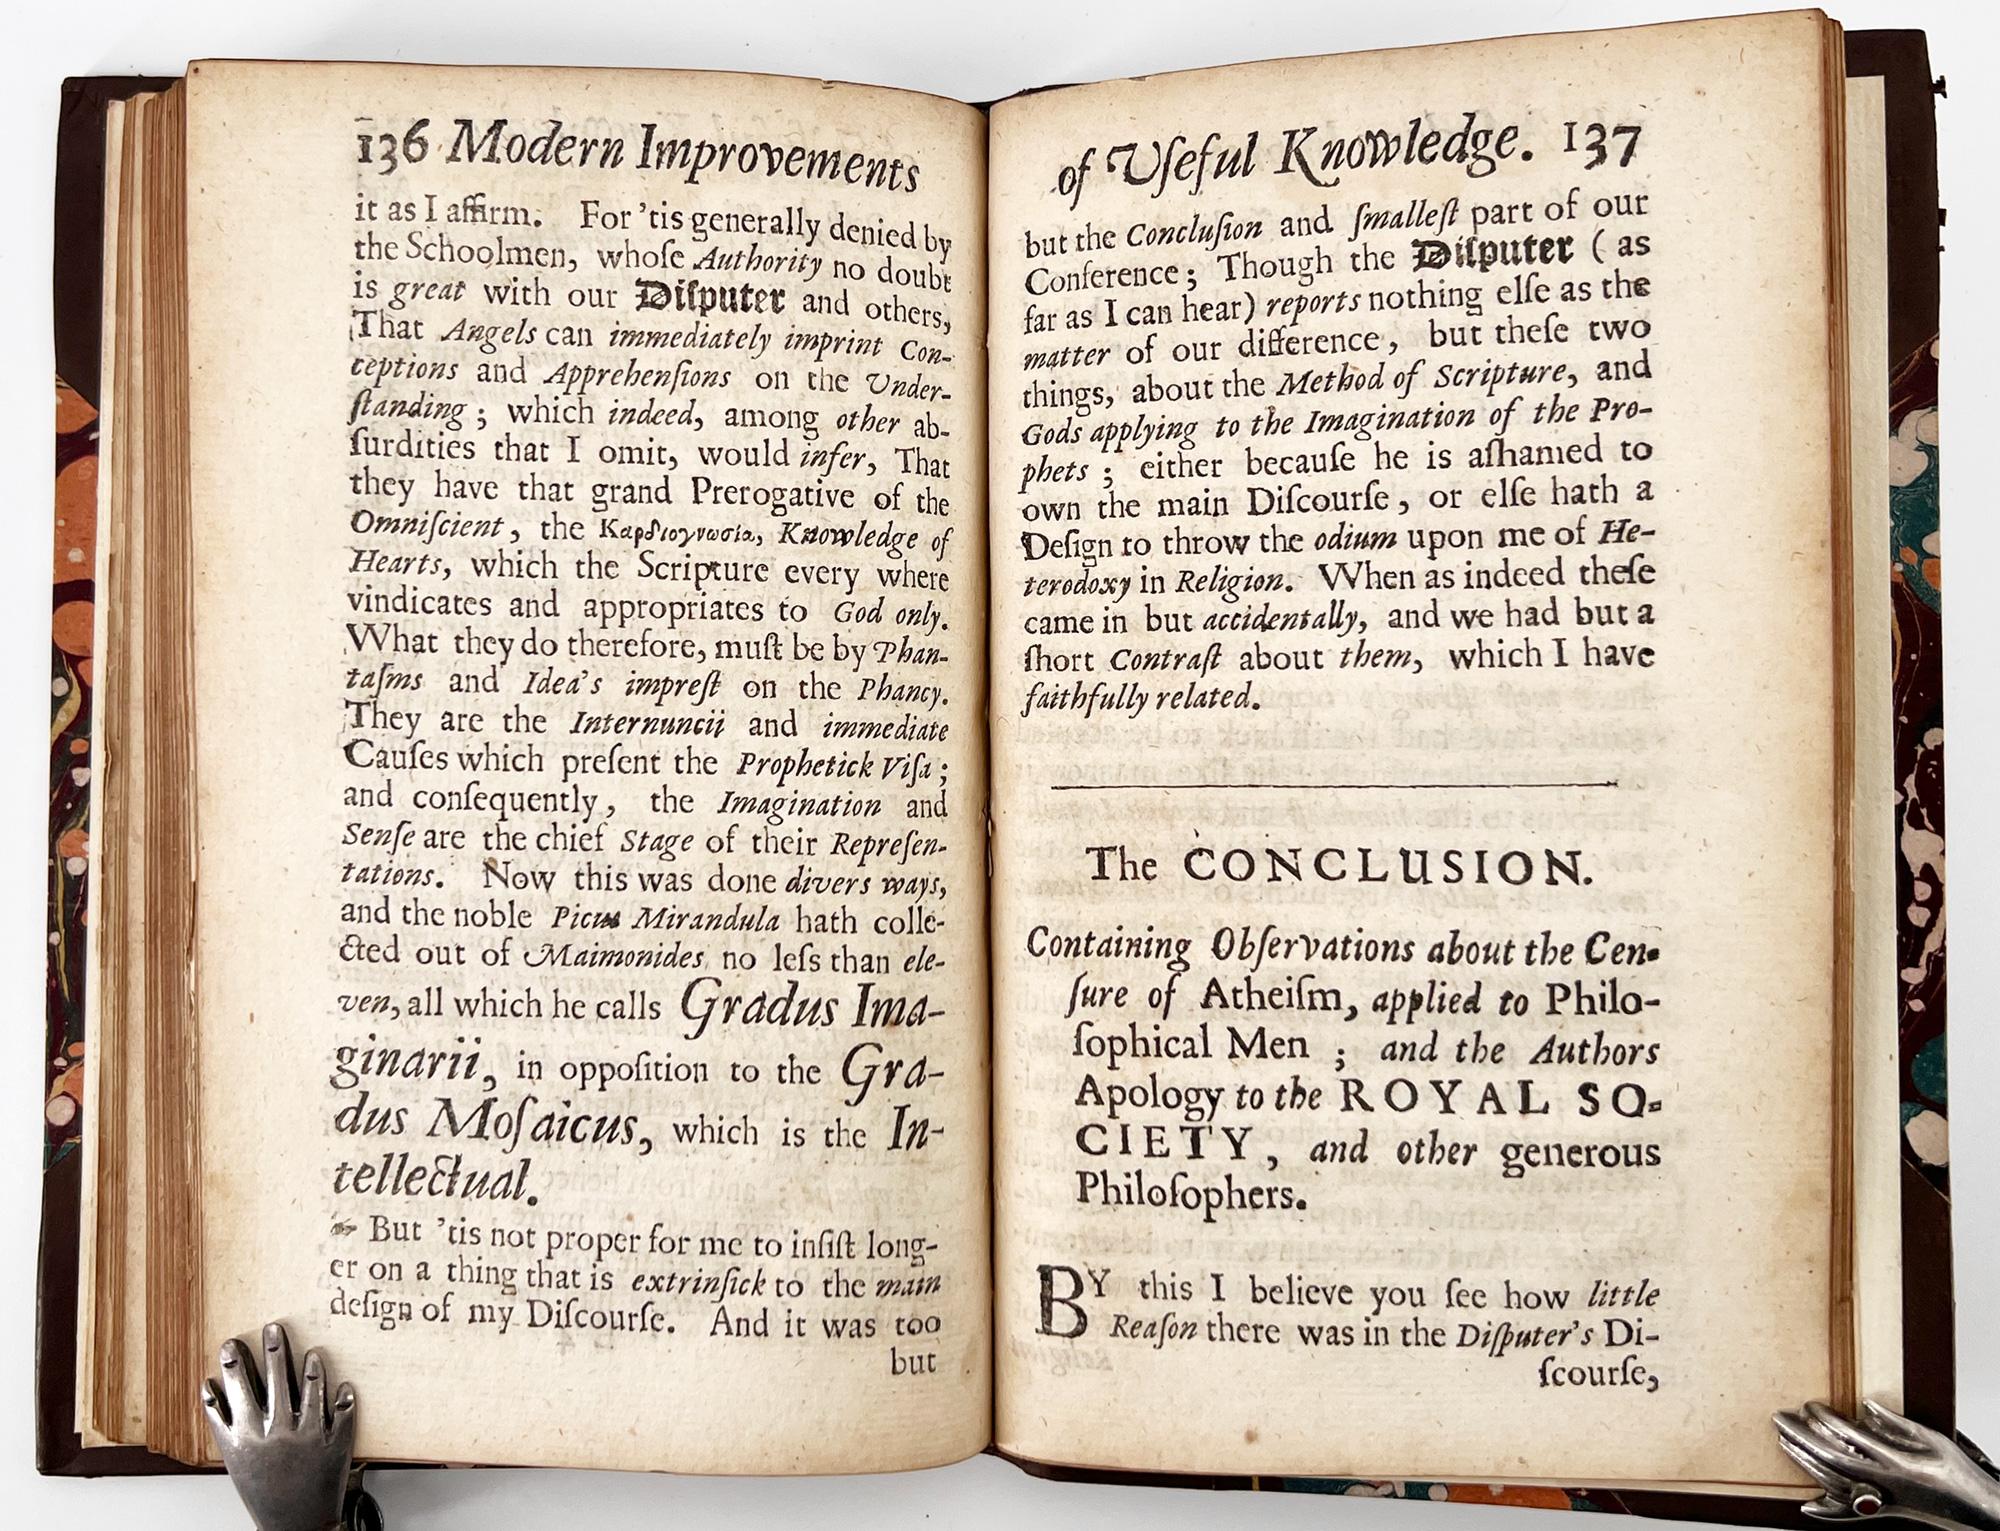 136 Modern Improvements
it as I affirm. For 'tis generally denied by
the Schoolmen, whoſe Authority no doubt
is great with our Diſputer and others,
That Angels can immediately imprint Con-
ceptions and Apprehenſions on the Under-
ſtanding; which indeed, among other ab-
ſurdities that I omit, would infer, That
they have that grand Prerogative of the
Omniſcient, the Καρδιογνωσία, Knowledge of
Hearts, which the Scripture every where
vindicates and appropriates to God only.
What they do therefore, muſt be by Phan-
taſms and Idea's impreſt on the Phancy.
They are the Internuncii and immediate
Cauſes which preſent the Prophetick Viſa;
and conſequently, the Imagination and
Senſe are the chief Stage of their Repreſen-
tations. Now this was done divers ways,
and the noble Picus Mirandula hath colle-
cted out of Maimonides no leſs than ele-
ven, all which he calls Gradus Ima-
ginarii, in oppoſition to the Gra-
dus Moſaicus, which is the In-
tellectual.
☞ But 'tis not proper for me to inſiſt long-
er on a thing that is extrinſick to the main
deſign of my Diſcourſe. And it was too
but
of Uſeful Knowledge. 137
but the Concluſion and ſmalleſt part of our
Conference; Though the Diſputer (as
far as I can hear) reports nothing elſe as the
matter of our difference, but theſe two
things, about the Method of Scripture, and
Gods applying to the Imagination of the Pro-
phets; either becauſe he is aſhamed to
own the main Diſcourſe, or elſe hath a
Deſign to throw the odium upon me of He-
terodoxy in Religion. When as indeed theſe
came in but accidentally, and we had but a
ſhort Contraſt about them, which I have
faithfully related.
The CONCLUSION.
Containing Obſervations about the Cen-
ſure of Atheiſm, applied to Philo-
ſophical Men; and the Authors
Apology to the ROYAL SO-
CIETY, and other generous
Philoſophers.
BY this I believe you ſee how little
Reaſon there was in the Diſputer's Di-
ſcourſe,